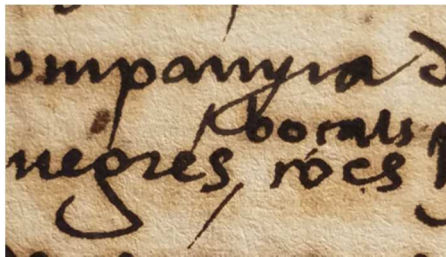 ompanyia d
borals
negres, rocs